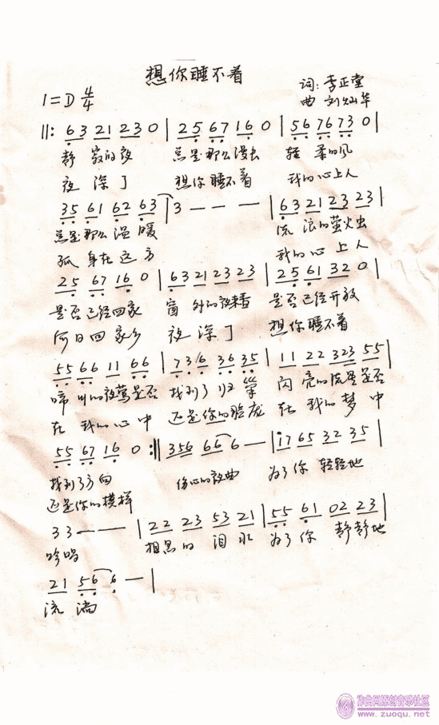 想你睡不着
1=D 4/4
词:李正堂
曲 刘灿华
||: 63 21 23 0 | 25 67 16 0 | 56 76 73 0 |
静 寂的夜 总是那么漫长 轻 柔的风
夜 深了 想你睡不着 我的心上人
35 61 62 63 | 3 — — — | 63 21 23 23 |
总是那么温暖 流 浪的萤火虫
孤 身在远方 我的心上人
25 67 16 0 | 63 21 23 23 | 25 61 32 0 |
是否已经回家 窗 外的夜来香 是否已经开放
何日回家乡 夜 深了 想你睡不着
55 66 11 66 | 73 6 36 35 | 11 22 323 55 |
啼叫的夜莺是否 找到了归巢 闪亮的流星是否
在 我的心中 还是你的脸庞 在 我的梦中
55 67 16 0 :|| 356 66 6 — | i7 65 32 35 |
找到了方向 伤心的夜曲 为了你 轻轻地
还是你的模样
3 3 — — — | 22 23 53 21 | 55 61 02 23 |
吟唱 相思的 泪水 为了你 静静地
21 56 6 — |
流 淌
www.zuoqu.net